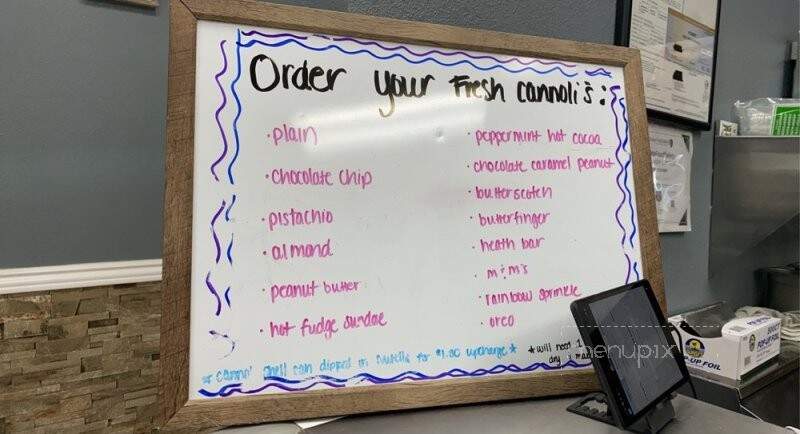 Order your Fresh cannoli's:
• plain
• chocolate chip
• pistachio
• almond
• peanut butter
• hot fudge sundae
• peppermint hot cocoa
• chocolate caramel peanut
• butterscotch
• butterfinger
• heath bar
• m&m's
• rainbow sprinkle
• oreo
shell can dipped in nutella for upcharge *
* will need
menupix
POP-UP FOIL
POP-UP FOIL